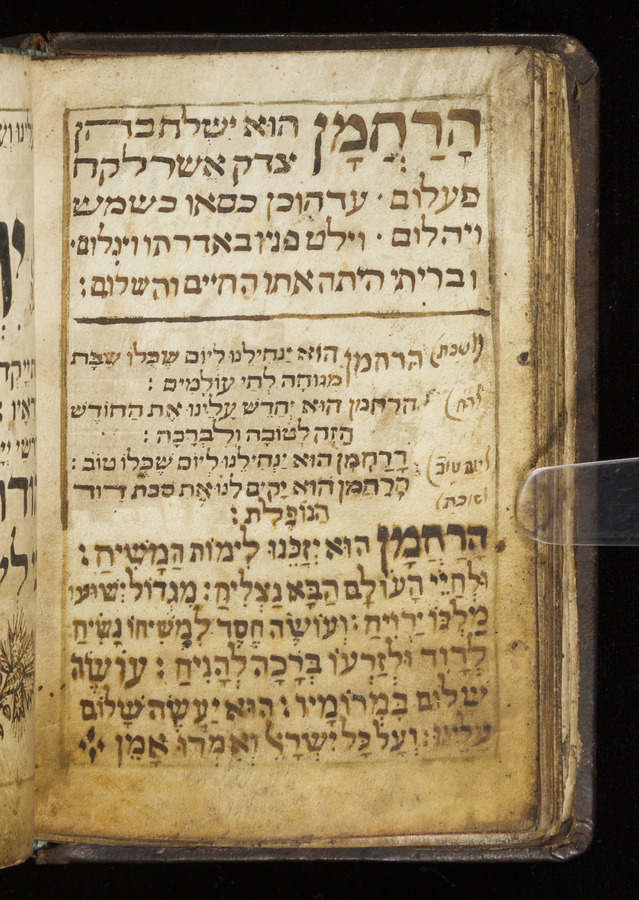 הָרַחֲמָן הוא ישלח כהן
צדק אשר לקח
פעלום · עד הוכן כסאו כשמש
ויהלום · וילט פניו באדרתו ויגלום ·
ובריתי היתה אתו החיים והשלום :
(שבת) הרחמן הוא ינחילנו ליום שכלו שבת
מנוחה לחי עולמים :
הרחמן הוא יחדש עלינו את החודש
הזה לטובה ולברכה :
(יום טוב) הָרַחֲמָן הוא ינחילנו ליום שכלו טוב :
(סוכות) הָרַחֲמָן הוא יקים לנו את סכת דויד
הנופלת :
הָרַחֲמָן הוא יְזַכֵּנוּ לימות הַמָּשִׁיחַ :
וּלְחַיֵּי הָעוֹלָם הַבָּא נַצְלִיחַ : מִגְדּוֹל יְשׁוּעוֹ
מַלְכּוֹ יַרְוִיחַ : וְעוֹשֶׂה חֶסֶד לִמְשִׁיחוֹ נָשִׂיחַ
לְדָוִד וּלְזַרְעוֹ בְּרָכָה לְהָנִיחַ : עוֹשֶׂה
שלום בִּמְרוֹמָיו : הוּא יַעֲשֶׂה שָׁלוֹם
עָלֵינוּ : וְעַל כָּל יִשְׂרָאֵל וְאִמְרוּ אָמֵן